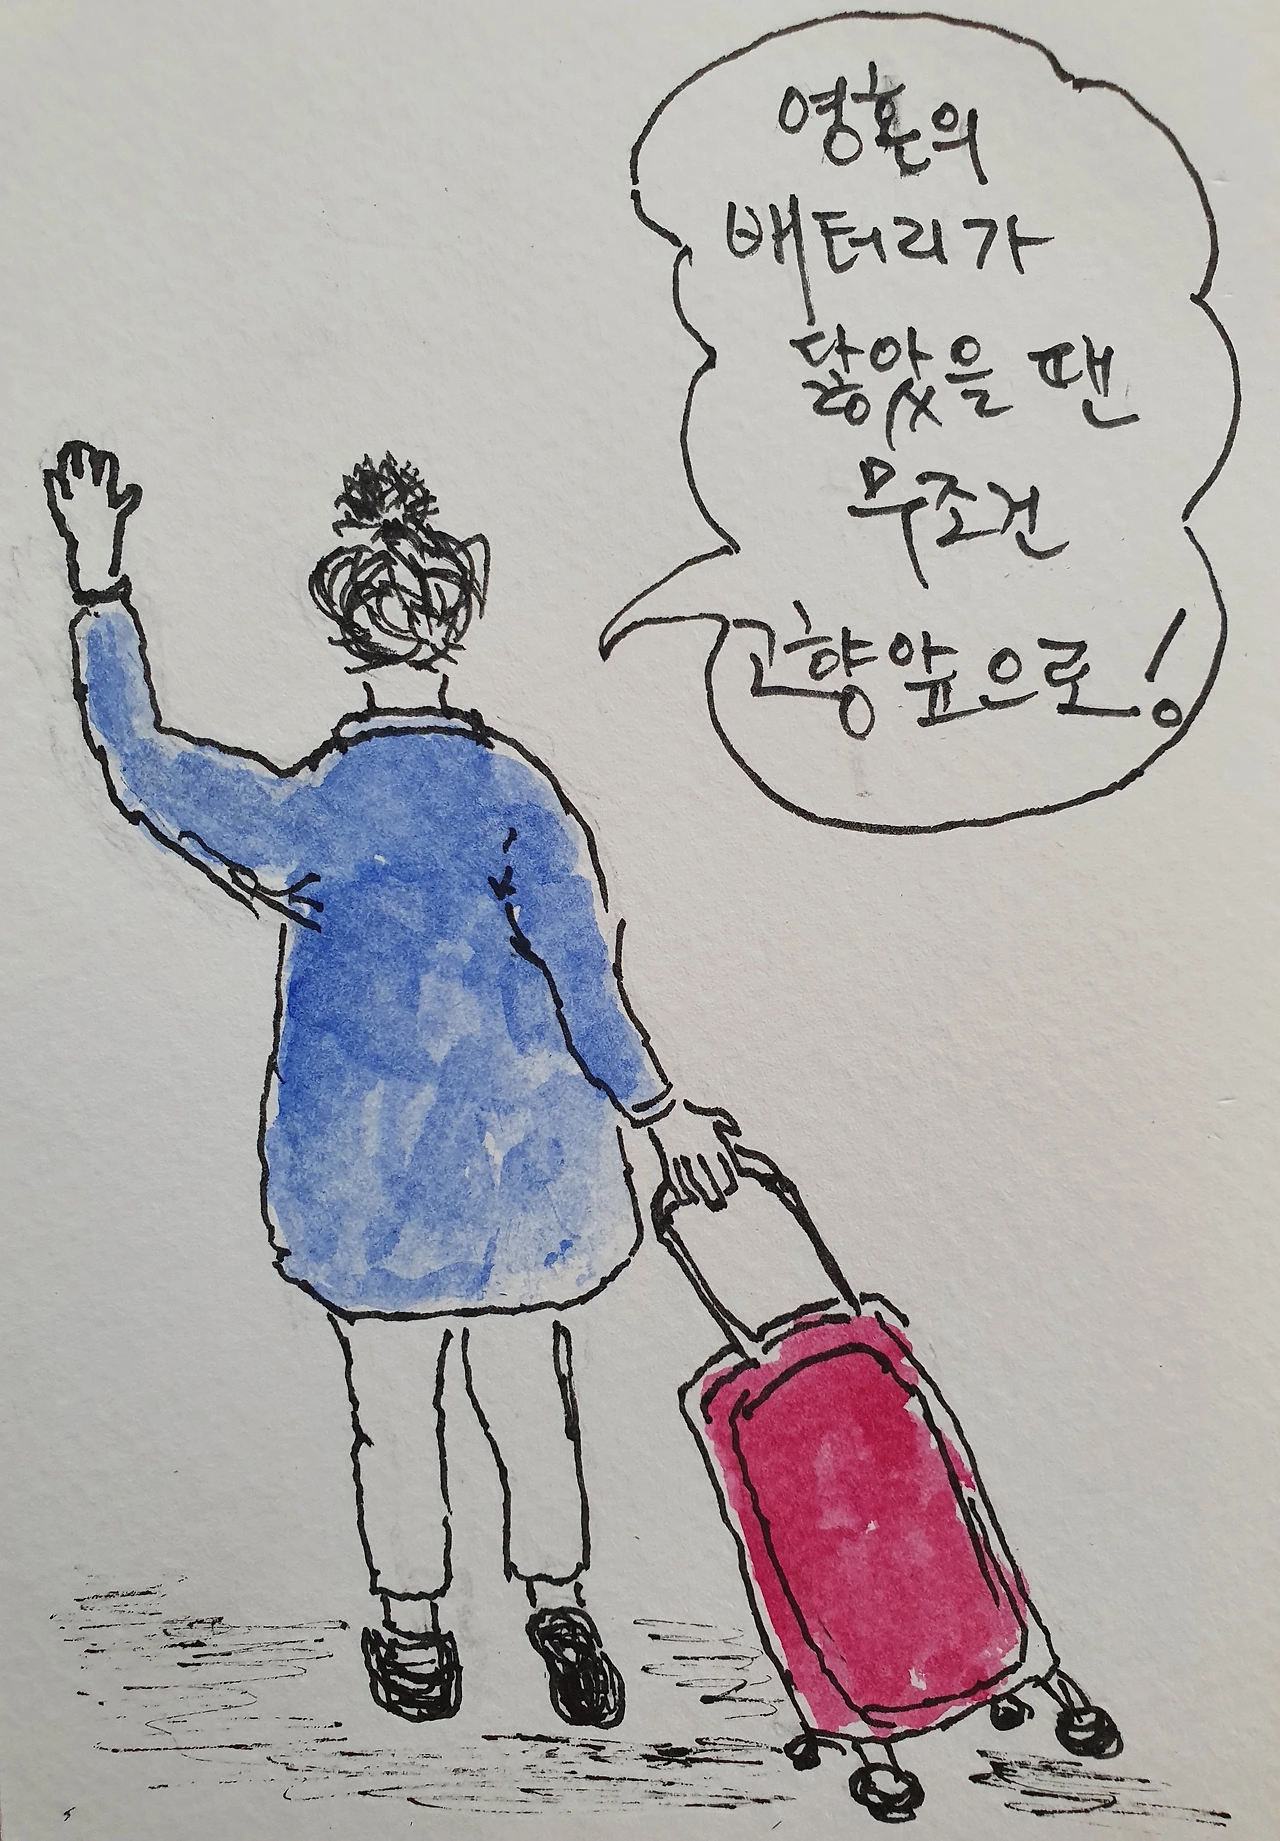 영혼의
배터리가
닳았을 땐
무조건
고향앞으로!